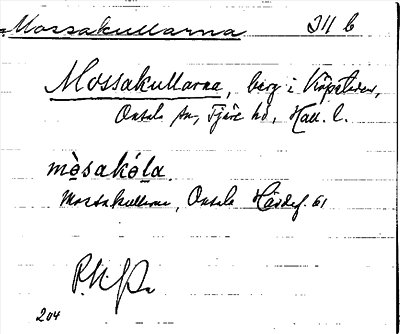 Mossakullarna III b
Mossakullarna, berg i Köpstaden,
Onsala sn, Fjäre hd, Hall. l.
mòsakóla.
Mossakullarne, Onsala Härdef. 61
204